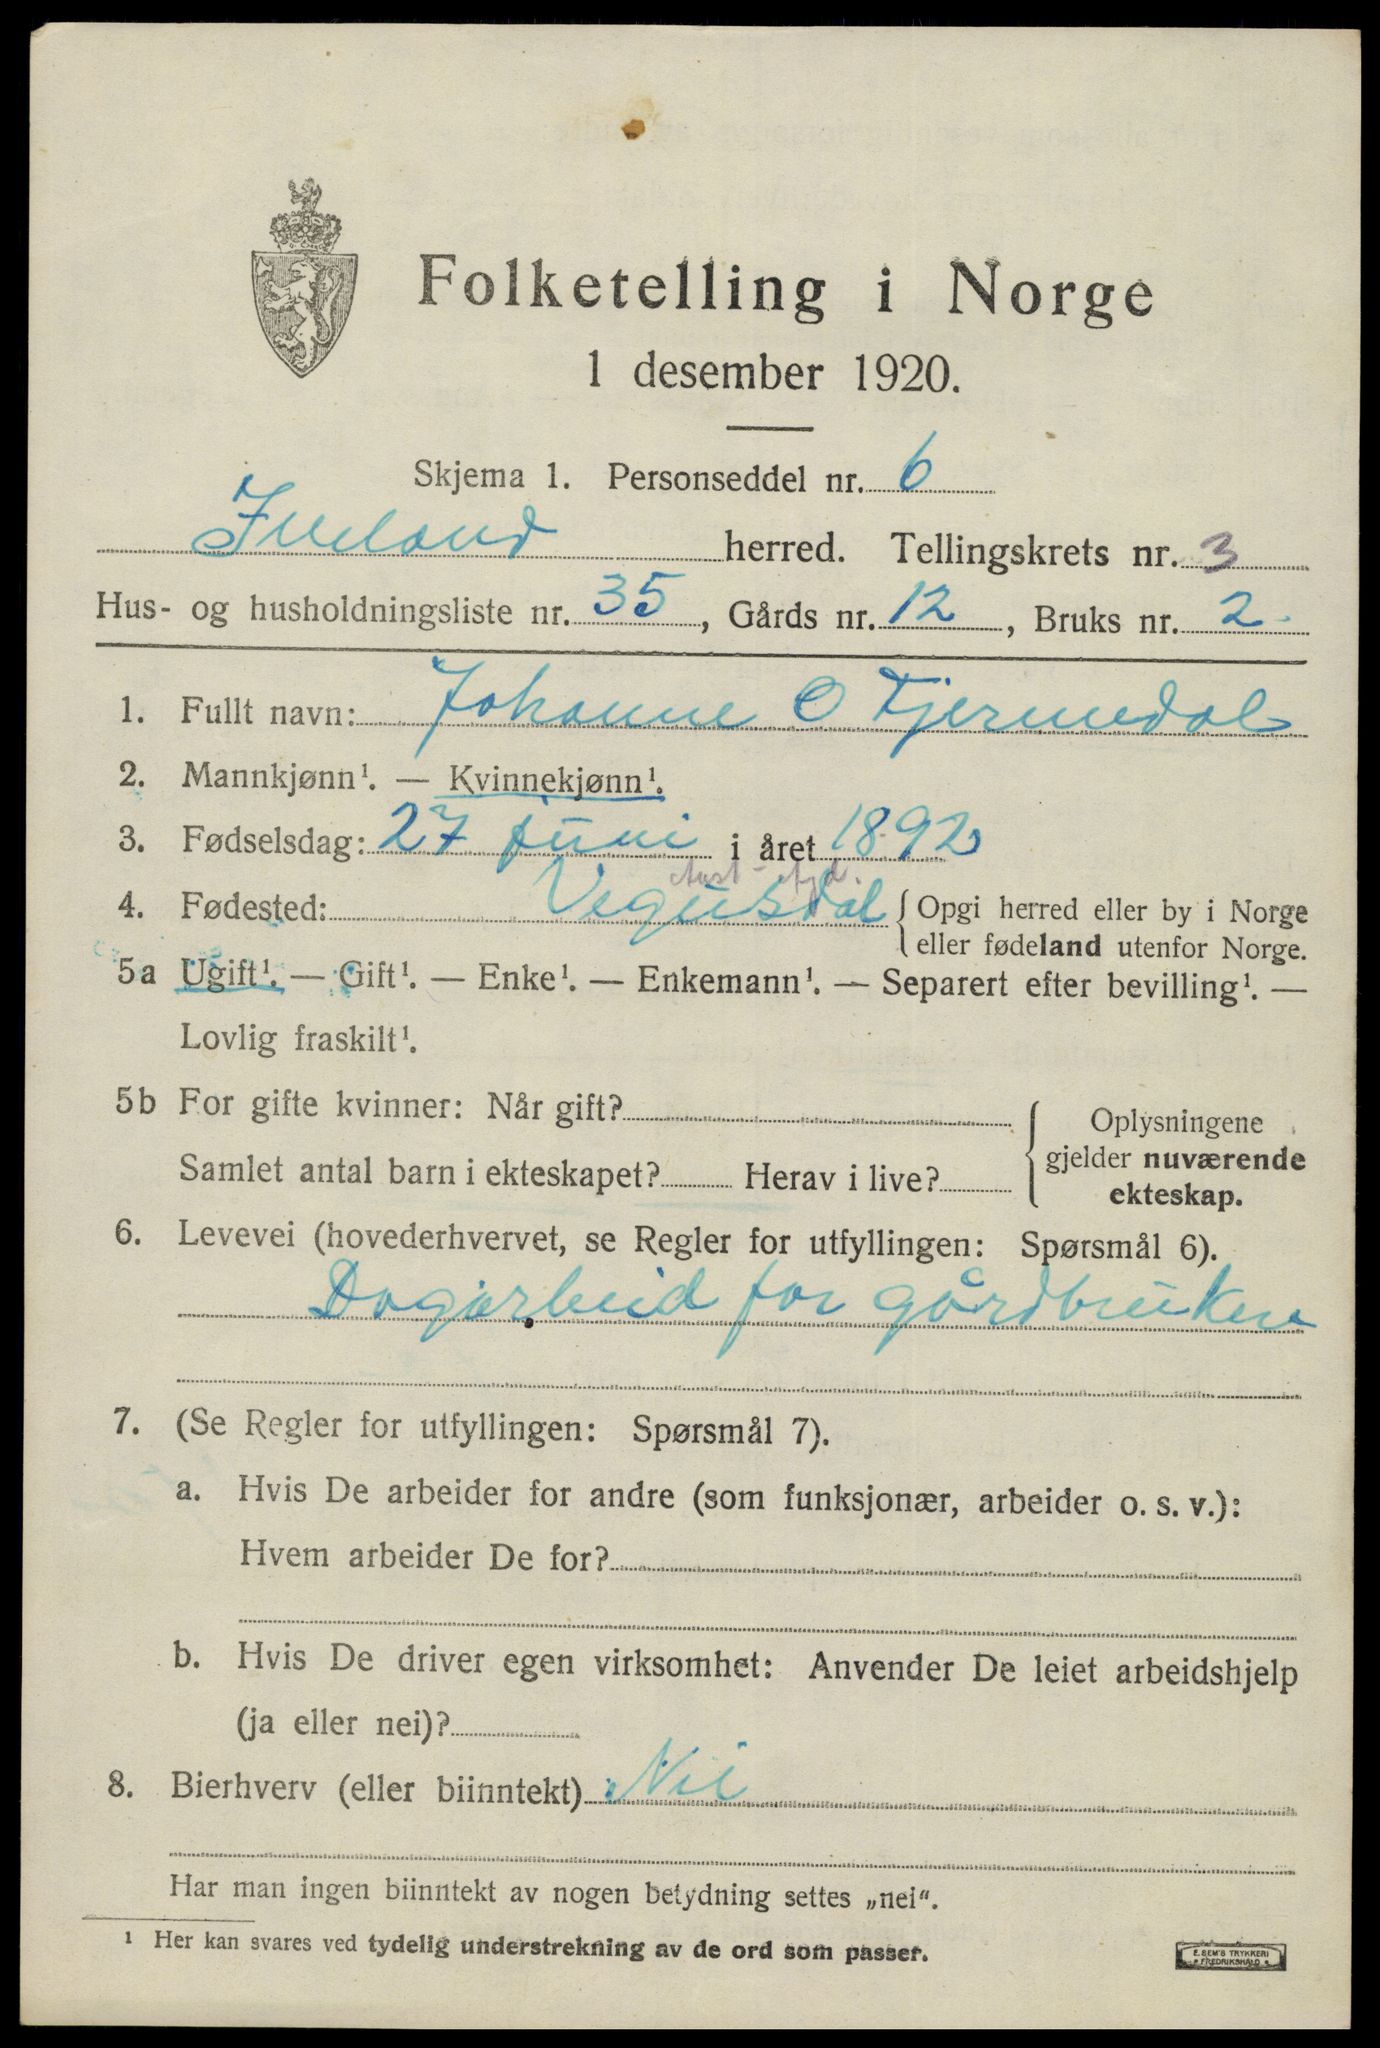 Folketelling i Norge
1 desember 1920.
Skjema 1. Personseddel nr. 6
Iveland herred. Tellingskrets nr. 3
Hus- og husholdningsliste nr. 35, Gårds nr. 12, Bruks nr. 2
1. Fullt navn: Johanne O Tjermedal
2. Mannkjønn¹. — Kvinnekjønn¹.
3. Fødselsdag: 27 juni i året 1892
Aust-Agd.
4. Fødested: Vegusdal { Opgi herred eller by i Norge
eller fødeland utenfor Norge.
5a Ugift¹. — Gift¹. — Enke¹. — Enkemann¹. — Separert efter bevilling¹. —
Lovlig fraskilt¹.
5b For gifte kvinner: Når gift? { Oplysningene
gjelder nuværende
ekteskap.
Samlet antal barn i ekteskapet? Herav i live?
6. Levevei (hovederhvervet, se Regler for utfyllingen: Spørsmål 6).
Dagarbeid for gårdbruker
7. (Se Regler for utfyllingen: Spørsmål 7).
a. Hvis De arbeider for andre (som funksjonær, arbeider o. s. v.):
Hvem arbeider De for?
b. Hvis De driver egen virksomhet: Anvender De leiet arbeidshjelp
(ja eller nei)?
8. Bierhverv (eller biinntekt) Nei
Har man ingen biinntekt av nogen betydning settes „nei“.
¹ Her kan svares ved tydelig understrekning av de ord som passer.
E. SEM'S TRYKKERI
FREDRIKSHALD